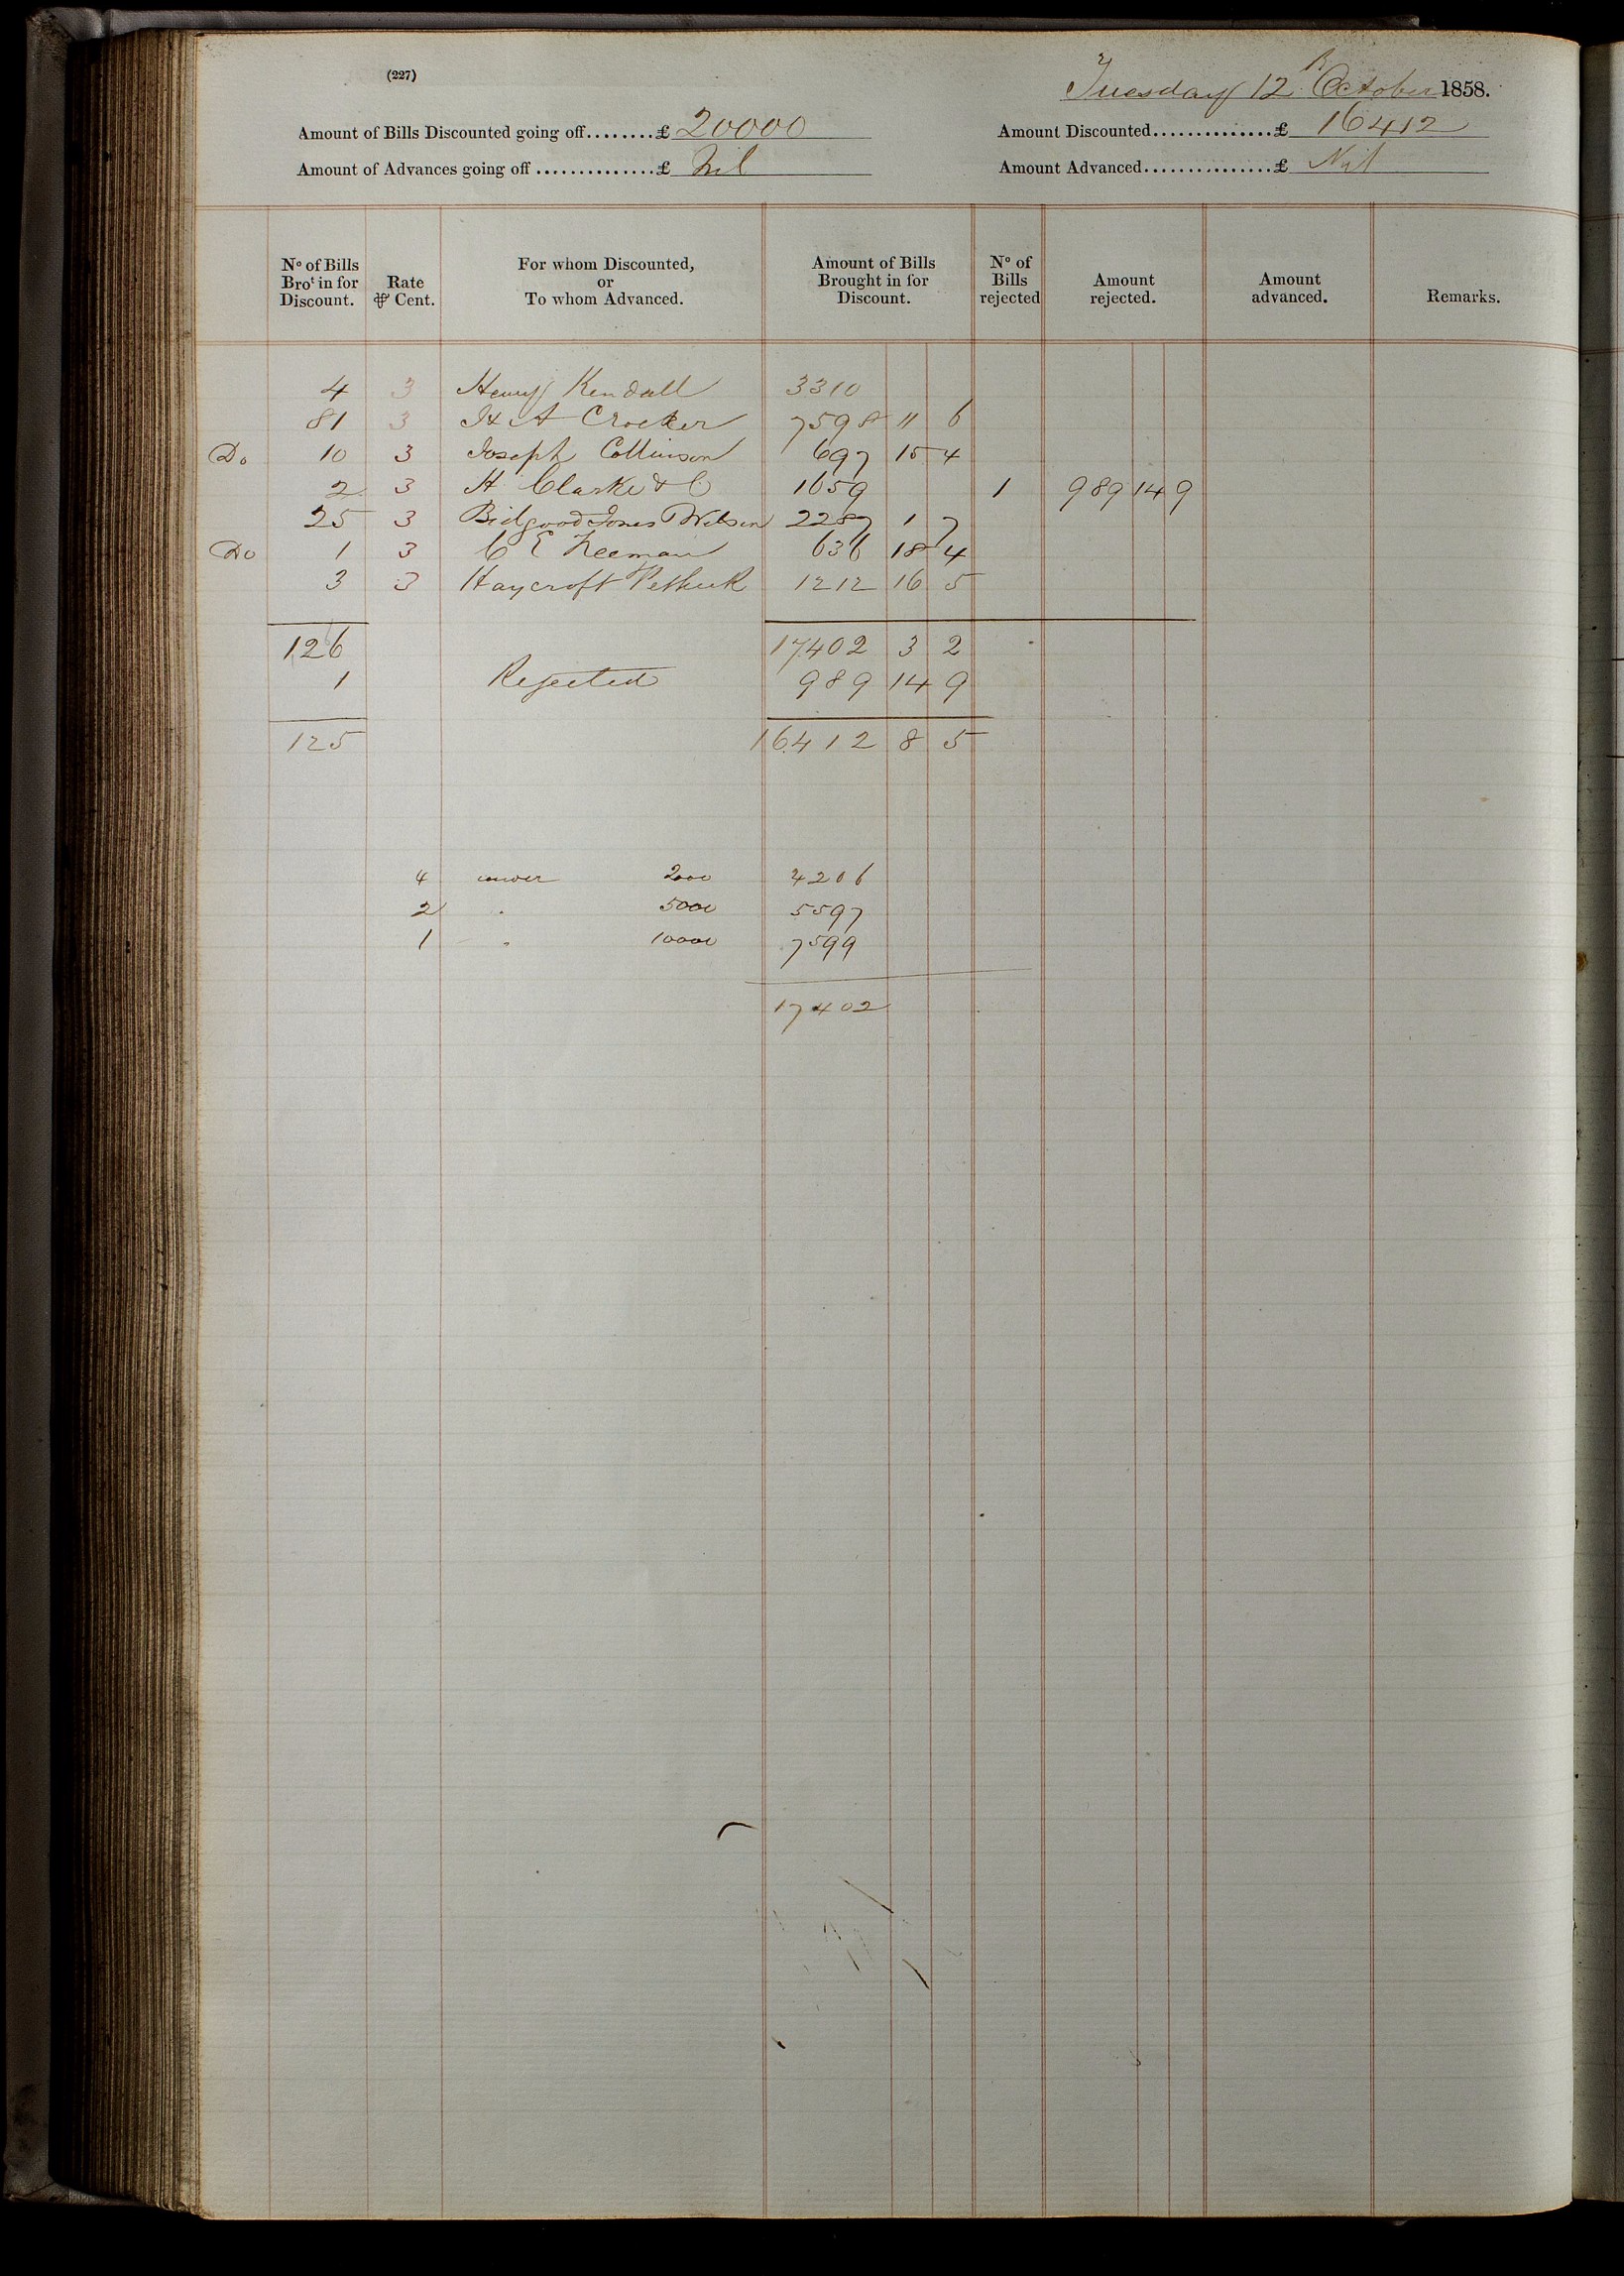 (227)
Tuesday 12th October 1858.
Amount of Bills Discounted going off........£ 20000
Amount Discounted...............£ 16412
Amount of Advances going off ...............£ Nil
Amount Advanced................£ Nil
No of Bills Brot in for Discount. Rate ⅌ Cent. For whom Discounted, or To whom Advanced. Amount of Bills Brought in for Discount. No of Bills rejected Amount rejected. Amount advanced. Remarks.
4 3 Henry Kendall 3310
81 3 H A Crocker 7598 11 6
Do 10 3 Joseph Collinson 697 15 4
2 3 H Clarke & C 1659 1 989 14 9
25 3 Bidgood Jones Wilson 2287 1 7
Do 1 3 C E Freeman 636 18 4
3 3 Haycroft Pethick 1212 16 5
126 17402 3 2
1 Rejected 989 14 9
125 16412 8 5
4 under 2000 4206
2 . 5000 5597
1 . 10000 7599
17402